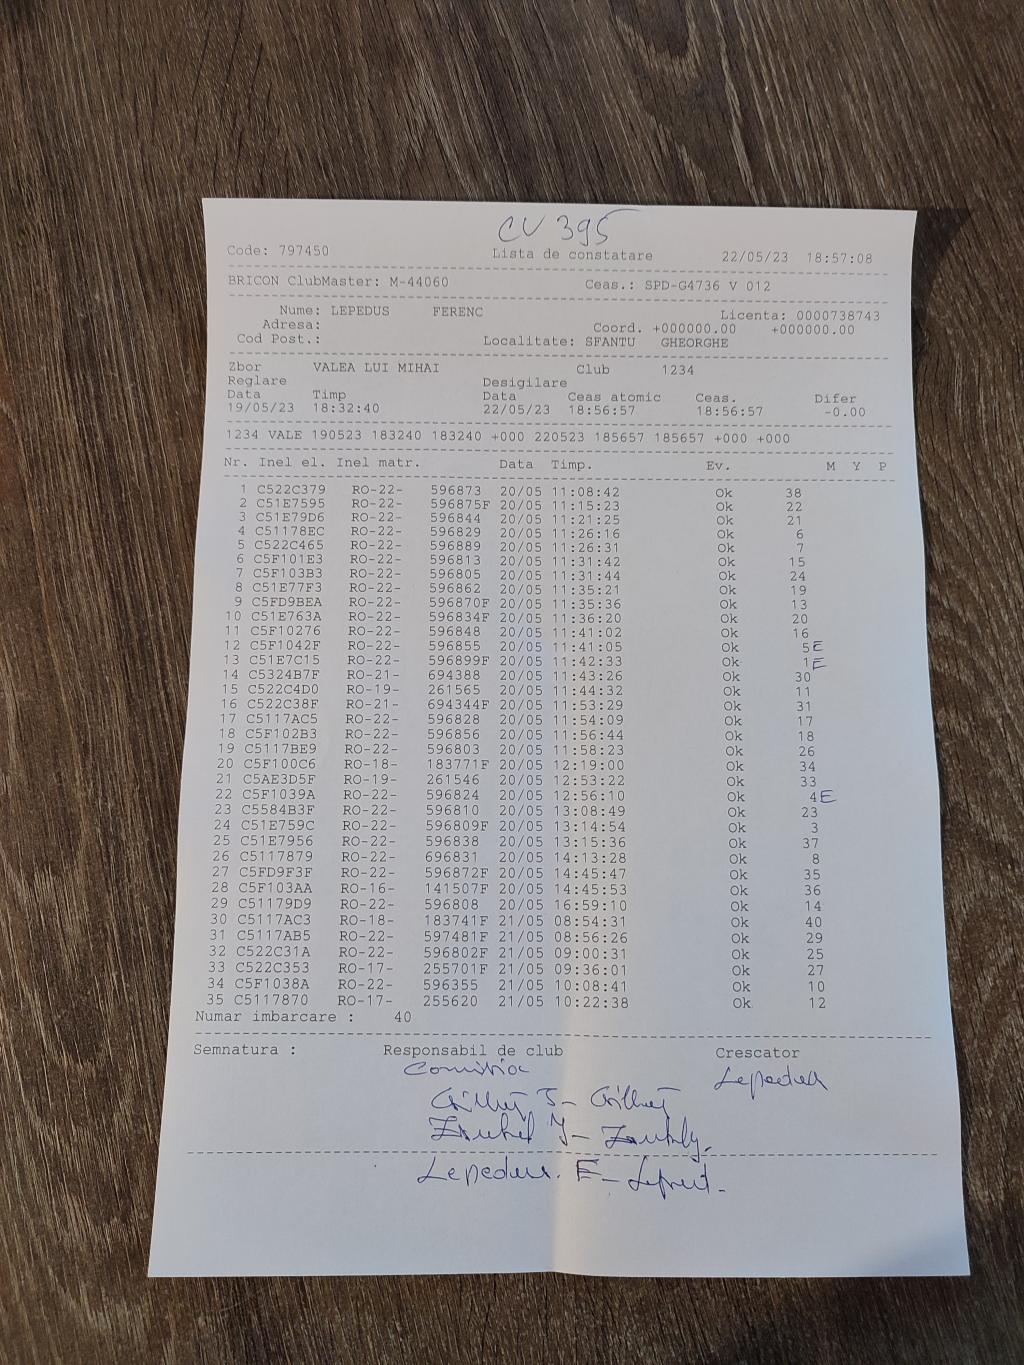 CV 395
Code: 797450 Lista de constatare 22/05/23 18:57:08
BRICON ClubMaster: M-44060 Ceas.: SPD-G4736 V 012
Nume: LEPEDUS FERENC Licenta: 0000738743
Adresa: Coord. +000000.00 +000000.00
Cod Post.: Localitate: SFANTU GHEORGHE
Zbor VALEA LUI MIHAI Club 1234
Reglare Desigilare
Data Timp Data Ceas atomic Ceas. Difer
19/05/23 18:32:40 22/05/23 18:56:57 18:56:57 -0.00
1234 VALE 190523 183240 183240 +000 220523 185657 185657 +000 +000
Nr. Inel el. Inel matr. Data Timp. Ev. M Y P
1 C522C379 RO-22- 596873 20/05 11:08:42 Ok 38
2 C51E7595 RO-22- 596875F 20/05 11:15:23 Ok 22
3 C51E79D6 RO-22- 596844 20/05 11:21:25 Ok 21
4 C51178EC RO-22- 596829 20/05 11:26:16 Ok 6
5 C522C465 RO-22- 596889 20/05 11:26:31 Ok 7
6 C5F101E3 RO-22- 596813 20/05 11:31:42 Ok 15
7 C5F103B3 RO-22- 596805 20/05 11:31:44 Ok 24
8 C51E77F3 RO-22- 596862 20/05 11:35:21 Ok 19
9 C5FD9BEA RO-22- 596870F 20/05 11:35:36 Ok 13
10 C51E763A RO-22- 596834F 20/05 11:36:20 Ok 20
11 C5F10276 RO-22- 596848 20/05 11:41:02 Ok 16
12 C5F1042F RO-22- 596855 20/05 11:41:05 Ok 5 E
13 C51E7C15 RO-22- 596899F 20/05 11:42:33 Ok 1 E
14 C5324B7F RO-21- 694388 20/05 11:43:26 Ok 30
15 C522C4D0 RO-19- 261565 20/05 11:44:32 Ok 11
16 C522C38F RO-21- 694344F 20/05 11:53:29 Ok 31
17 C5117AC5 RO-22- 596828 20/05 11:54:09 Ok 17
18 C5F102B3 RO-22- 596856 20/05 11:56:44 Ok 18
19 C5117BE9 RO-22- 596803 20/05 11:58:23 Ok 26
20 C5F100C6 RO-18- 183771F 20/05 12:19:00 Ok 34
21 C5AE3D5F RO-19- 261546 20/05 12:53:22 Ok 33
22 C5F1039A RO-22- 596824 20/05 12:56:10 Ok 4 E
23 C5584B3F RO-22- 596810 20/05 13:08:49 Ok 23
24 C51E759C RO-22- 596809F 20/05 13:14:54 Ok 3
25 C51E7956 RO-22- 596838 20/05 13:15:36 Ok 37
26 C5117879 RO-22- 696831 20/05 14:13:28 Ok 8
27 C5FD9F3F RO-22- 596872F 20/05 14:45:47 Ok 35
28 C5F103AA RO-16- 141507F 20/05 14:45:53 Ok 36
29 C51179D9 RO-22- 596808 20/05 16:59:10 Ok 14
30 C5117AC3 RO-18- 183741F 21/05 08:54:31 Ok 40
31 C5117AB5 RO-22- 597481F 21/05 08:56:26 Ok 29
32 C522C31A RO-22- 596802F 21/05 09:00:31 Ok 25
33 C522C353 RO-17- 255701F 21/05 09:36:01 Ok 27
34 C5F1038A RO-22- 596355 21/05 10:08:41 Ok 10
35 C5117870 RO-17- 255620 21/05 10:22:38 Ok 12
Numar imbarcare : 40
Semnatura : Responsabil de club Crescator
Comisia Lepedus
Lepedus. E -